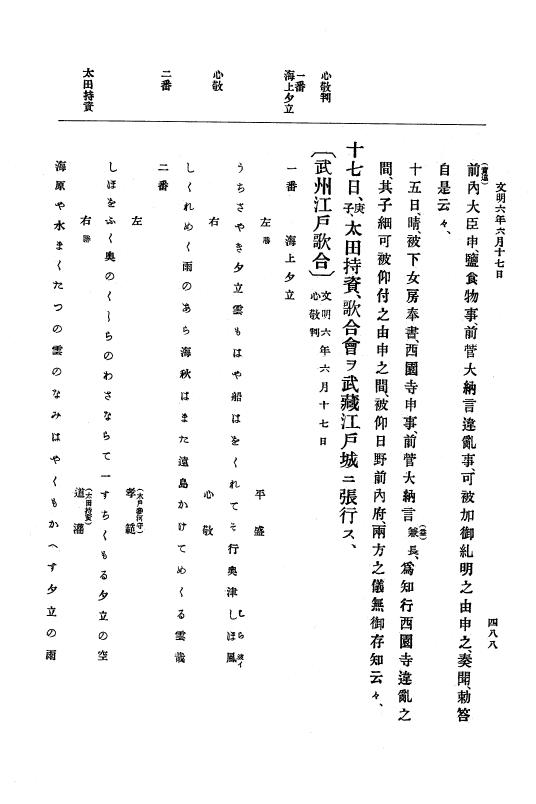 文明六年六月十七日
四八八
前內大臣申、鹽食物事、前菅大納言違亂事、可被加御糺明之由申之、奏聞、勅答
自是云々、
十五日、晴、被下女房奉書、西園寺申事、前菅大納言兼長、爲知行西園寺違亂之
間、其子細可被仰付之由申之間、被仰日野前內府、兩方之儀無御存知云々、
十七日、庚子、太田持資、歌合會ヲ武藏江戶城ニ張行ス、
〔武州江戶歌合〕 文明六年六月十七日 心敬判
心敬判
一番 海上夕立
一番 海上夕立
左勝 平盛
うちさやき夕立雲もはや船はをくれてそ行奧津しほ風
しら波イ
心敬
右 心敬
しくれめく雨のあら海秋はまた遠島かけてめくる雲哉
二番
二番
左 孝範
しほをふく奧のくしらのわさならて一すちくもる夕立の空
太田持資
右勝 道灌
(太田持資)
海原や水まくたつの雲のなみはやくもかへす夕立の雨